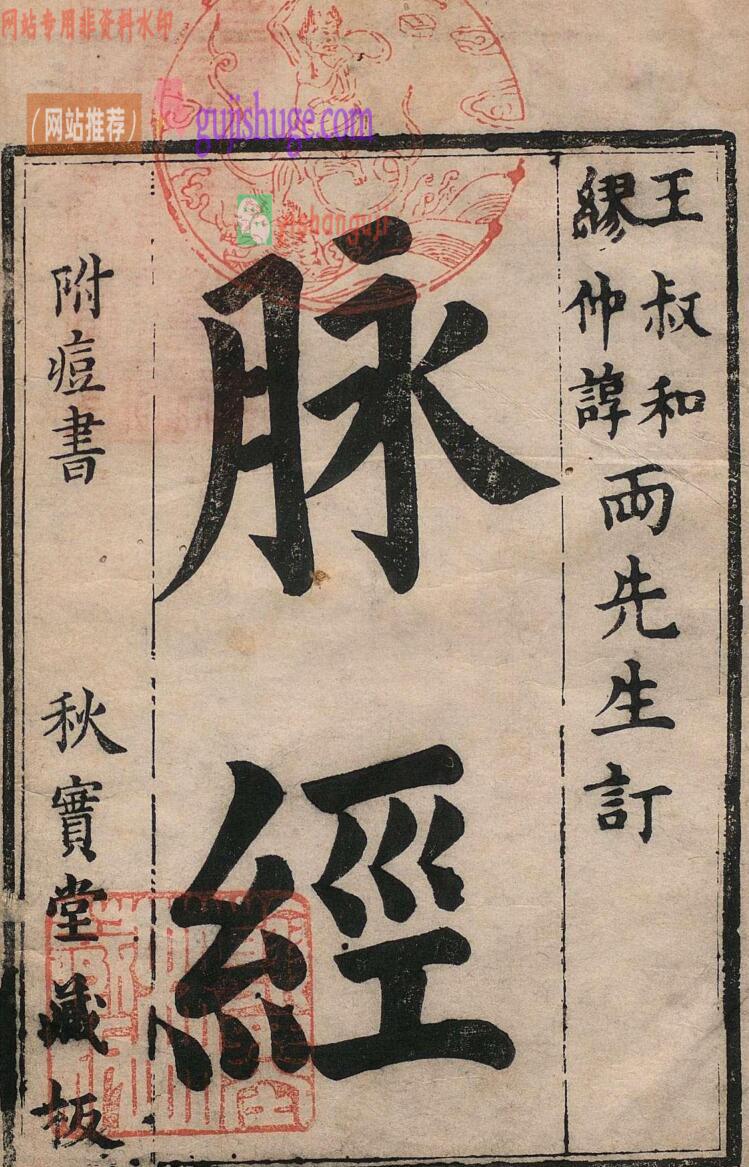 网站专用非资料水印
（网站推荐）
gujishuge.com
王叔和
繆仲諄
兩先生訂
脉經
附痘書
秋實堂藏板